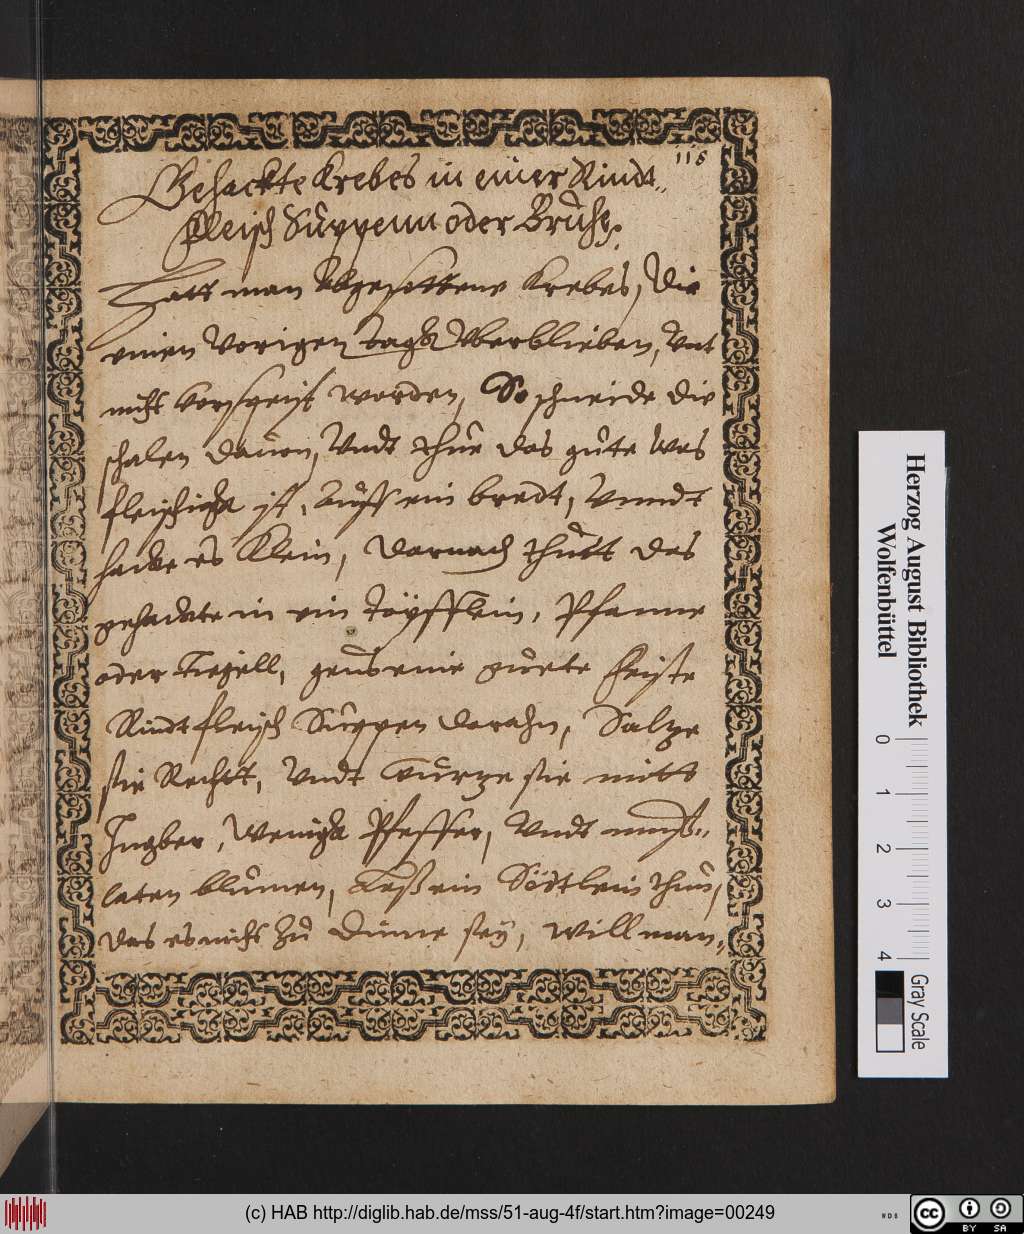 118
Gehackte Krebes in einer Rindt„
fleisch Suppenn oder Brühe.
Hatt man Abgesottene Krebes, die
einen Vorigen tagk Uberblieben, Vnt
nicht worden, So schneide die
schalen dauon, Vndt thue das gute was
fleischicht ist, auff ein bredt, Vnndt
hacke es Klein, darnach thutt das
gehackte in ein Töpfflein, Pfanne
oder Tiegell, geus eine guete feiste
Rindtfleisch Suppen darahn, Saltze
sie Rechtt, Vndt wurtze sie mitt
Ingber, Wenigk Pfeffer, Vndt musch„
katen blumen, Laß ein Södtlein thun,
das es nicht Zu dünne sey, will man„
Herzog August Bibliothek
Wolfenbüttel
0 1 2 3 4
Gray Scale
(c) HAB http://diglib.hab.de/mss/51-aug-4f/start.htm?image=00249
WDB
cc BY SA